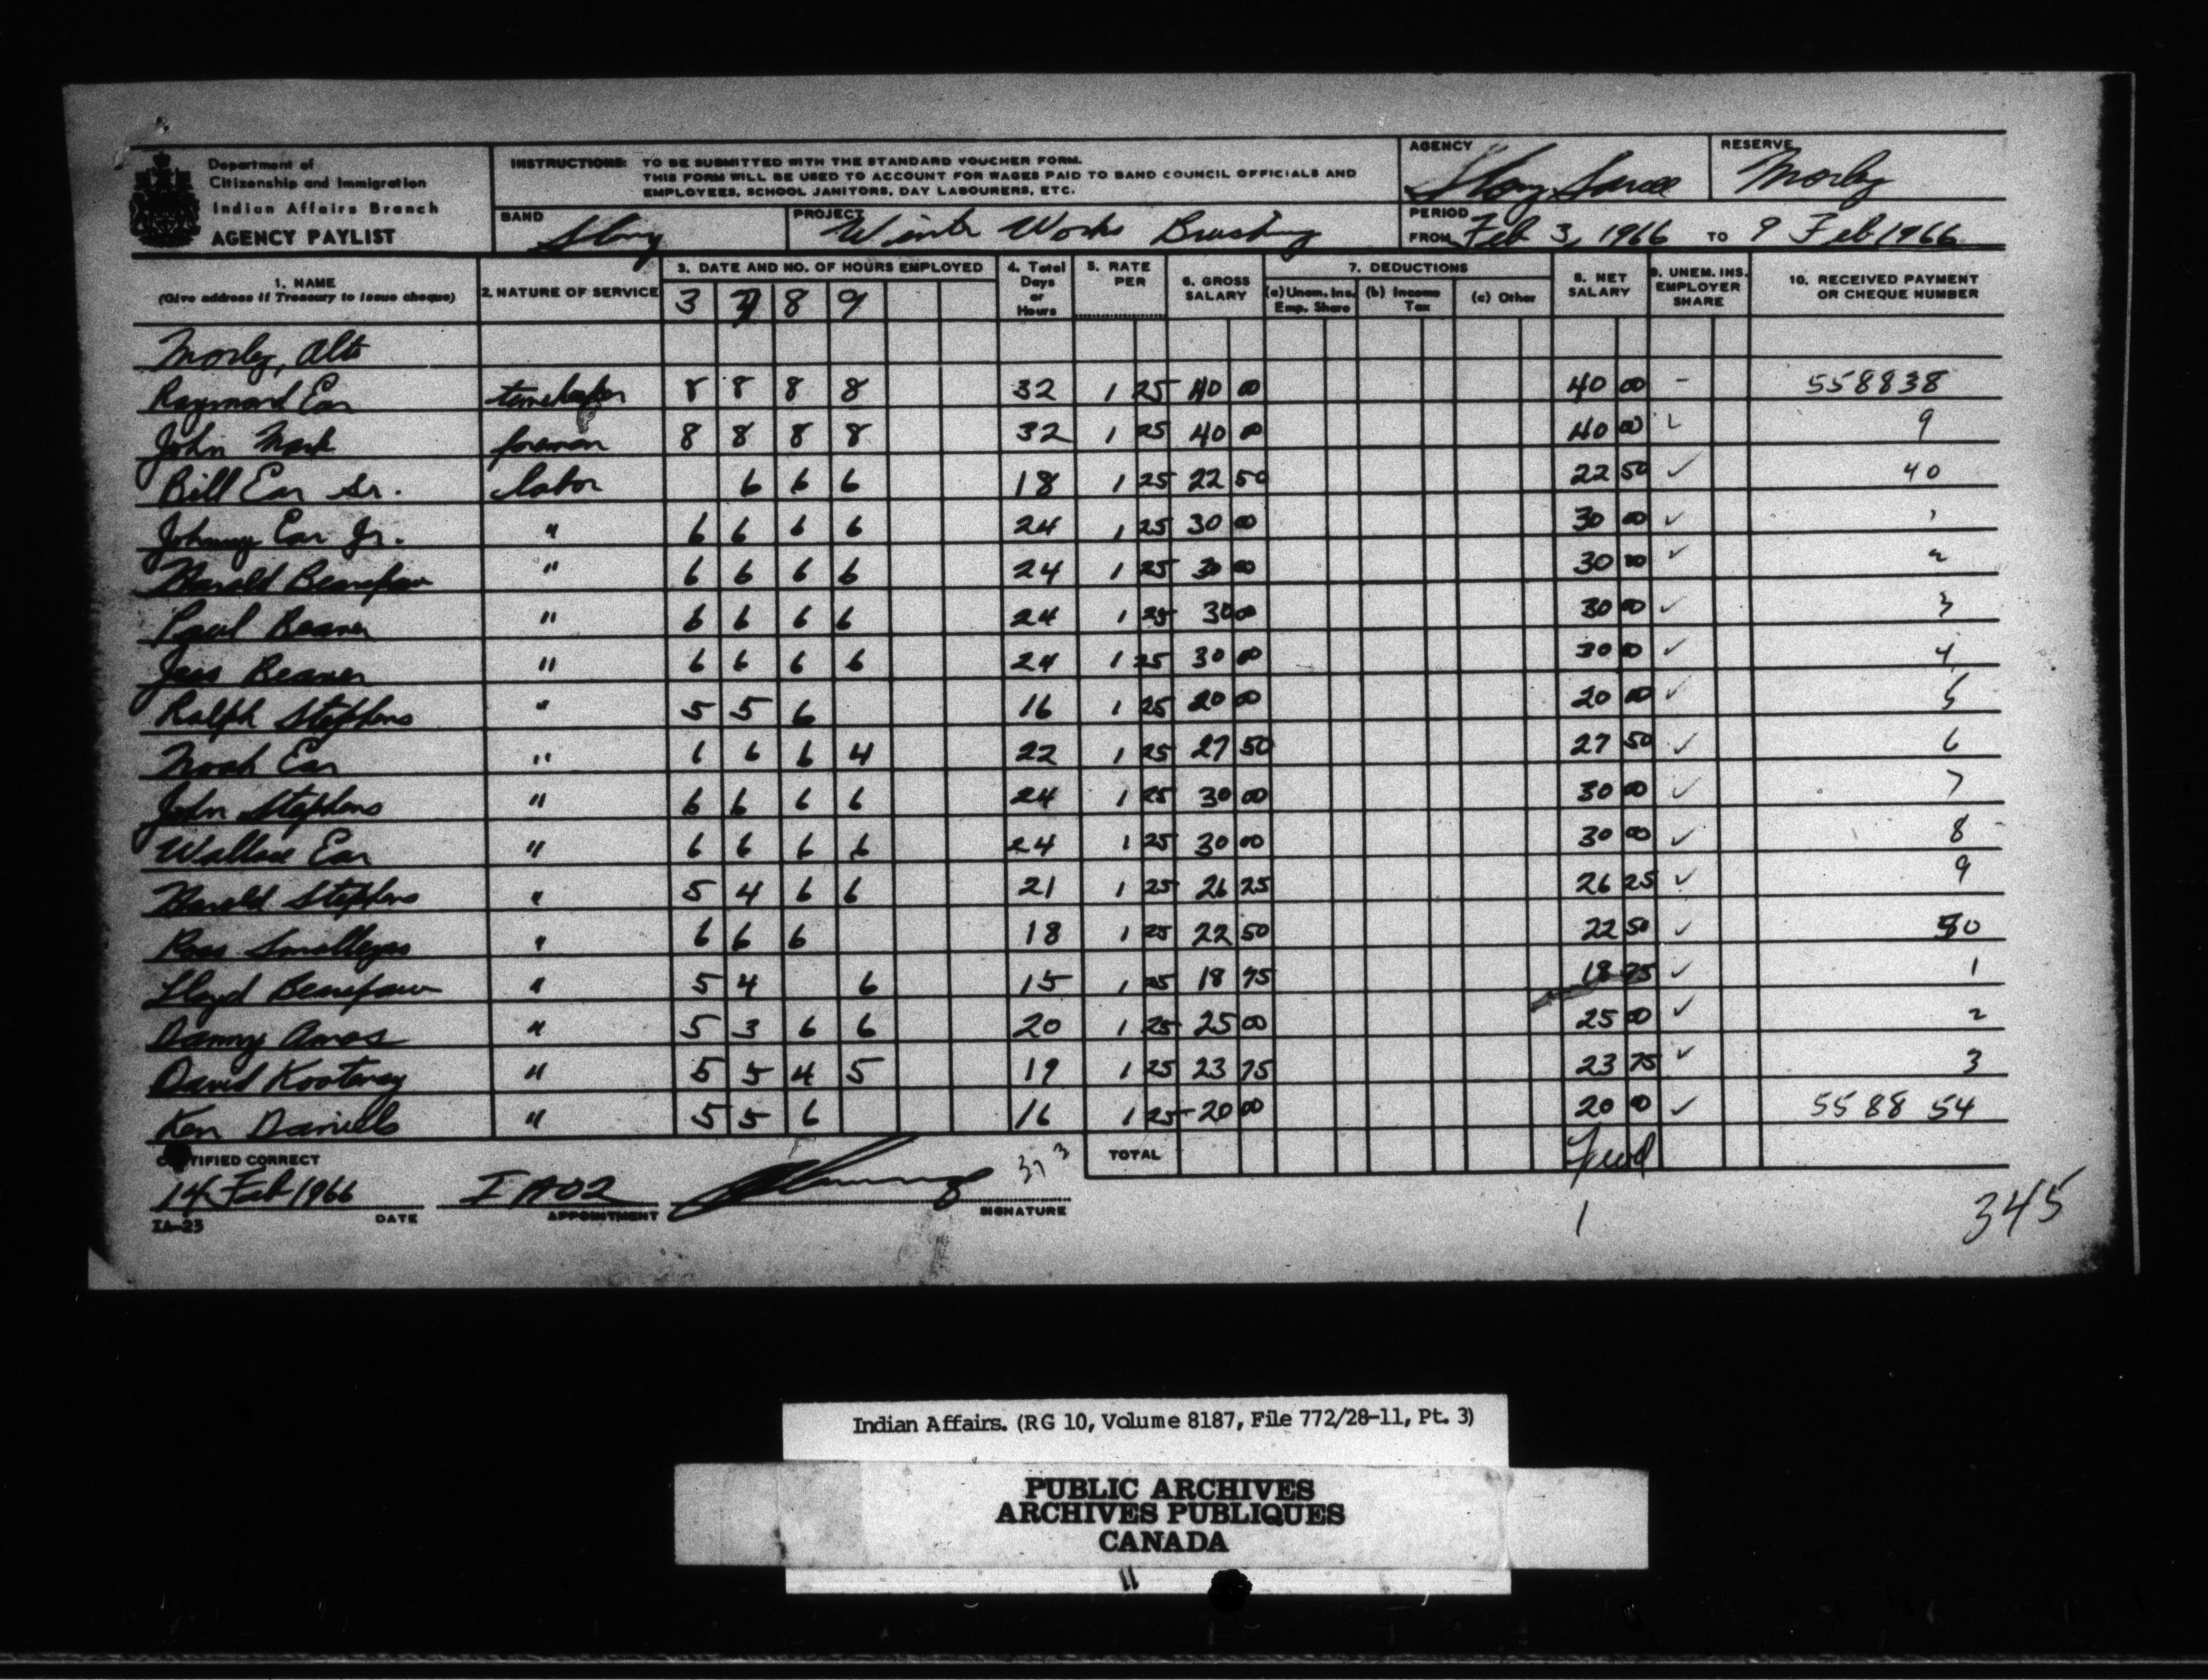 Department of
Citizenship and Immigration
Indian Affairs Branch
AGENCY PAYLIST
INSTRUCTIONS: TO BE SUBMITTED WITH THE STANDARD VOUCHER FORM.
THIS FORM WILL BE USED TO ACCOUNT FOR WAGES PAID TO BAND COUNCIL OFFICIALS AND
EMPLOYEES, SCHOOL JANITORS, DAY LABOURERS, ETC.
AGENCY Stony Sarcee
RESERVE Morley
BAND Stony
PROJECT Winter Works Brushing
PERIOD
FROM Feb 3, 1966 TO 9 Feb 1966
1. NAME
(Give address if Treasury to issue cheque)
2. NATURE OF SERVICE
3. DATE AND NO. OF HOURS EMPLOYED
3 7 8 9
4. Total Days or Hours
5. RATE PER
6. GROSS SALARY
7. DEDUCTIONS
(a) Unem. Ins. Emp. Share
(b) Income Tax
(c) Other
8. NET SALARY
9. UNEM. INS. EMPLOYER SHARE
10. RECEIVED PAYMENT OR CHEQUE NUMBER
Morley, Alta
Raymond Ear timekeeper 8 8 8 8 32 1 25 40 00 40 00 - 558838
John Mark foreman 8 8 8 8 32 1 25 40 00 40 00 ✓ 9
Bill Ear Sr. labor 6 6 6 18 1 25 22 50 22 50 ✓ 40
Johnny Ear Jr. " 6 6 6 6 24 1 25 30 00 30 00 ✓ 1
Harold Bearspaw " 6 6 6 6 24 1 25 30 00 30 00 ✓ 2
Paul Beaver " 6 6 6 6 24 1 25 30 00 30 00 ✓ 3
Jess Beaver " 6 6 6 6 24 1 25 30 00 30 00 ✓ 4
Ralph Stephens " 5 5 6 16 1 25 20 00 20 00 ✓ 5
Noah Ear " 6 6 6 4 22 1 25 27 50 27 50 ✓ 6
John Stephens " 6 6 6 6 24 1 25 30 00 30 00 ✓ 7
Wallace Ear " 6 6 6 6 24 1 25 30 00 30 00 ✓ 8
Harold Stephens " 5 4 6 6 21 1 25 26 25 26 25 ✓ 9
Ross Smalleyes " 6 6 6 18 1 25 22 50 22 50 ✓ 50
Lloyd Bearspaw " 5 4 6 15 1 25 18 75 18 75 ✓ 1
Danny Amos " 5 3 6 6 20 1 25 25 00 25 00 ✓ 2
David Kootenay " 5 5 4 5 19 1 25 23 75 23 75 ✓ 3
Ken Daniels " 5 5 6 16 1 25 20 00 20 00 ✓ 5588 54
TOTAL
CERTIFIED CORRECT
14 Feb 1966 DATE
IA02 APPOINTMENT
SIGNATURE
IA-23
1
345
Indian Affairs. (RG 10, Volume 8187, File 772/28-11, Pt. 3)
PUBLIC ARCHIVES
ARCHIVES PUBLIQUES
CANADA